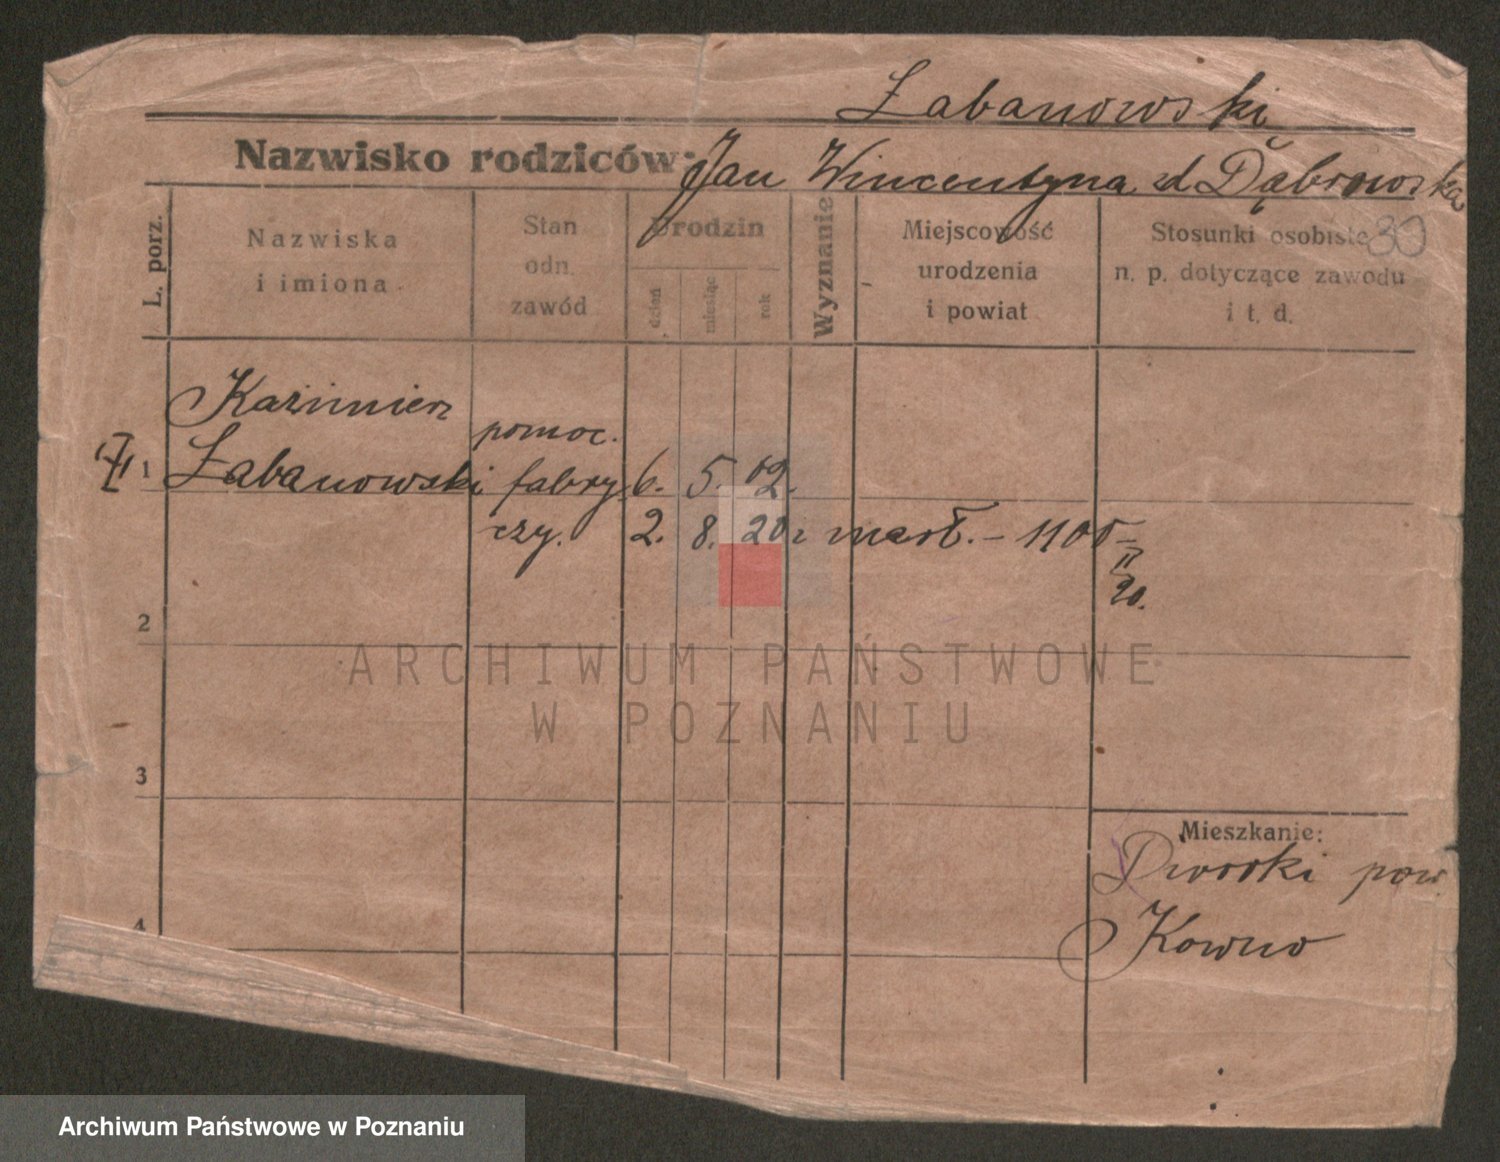 Łabanowski
Nazwisko rodziców: Jan Wincentyna zd Dąbrowska
L. porz.
Nazwiska
i imiona
Stan
odn.
zawód
Urodzin
dzień
miesiąc
rok
Wyznanie
Miejscowość
urodzenia
i powiat
Stosunki osobiste
n. p. dotyczące zawodu
i t. d.
Kazimierz
1 Łabanowski
pomoc.
fabry
czy.
6. 5. 02.
2. 8. 20 r. marł. – 1100
II
20.
2
3
4
Mieszkanie:
Dworki pow.
Kowno
ARCHIWUM PAŃSTWOWE
W POZNANIU
Archiwum Państwowe w Poznaniu